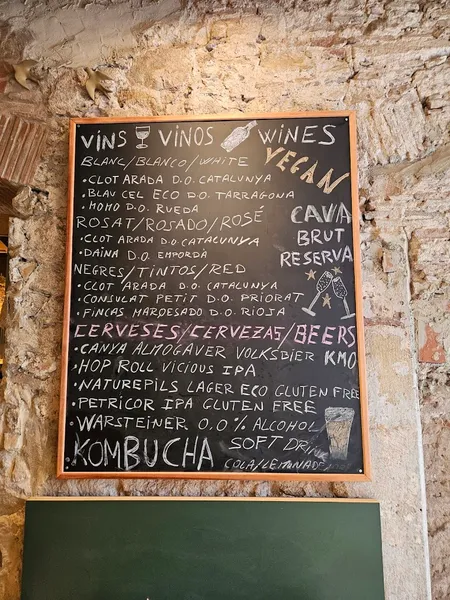 VINS VINOS WINES
BLANC/BLANCO/WHITE
VEGAN
•CLOT ARADA D.O. CATALUNYA
•BLAU CEL ECO D.O. TARRAGONA
•MOMO D.O. RUEDA
ROSAT/ROSADO/ROSÉ
•CLOT ARADA D.O. CATALUNYA
•DAINA D.O. EMPORDÀ
CAVA
BRUT
RESERVA
NEGRES/TINTOS/RED
•CLOT ARADA D.O. CATALUNYA
•CONSULAT PETIT D.O. PRIORAT
•FINCAS MARQUESADO D.O. RIOJA
CERVESES/CERVEZAS/BEERS
•CANYA ALMOGAVER VOLKSBIER KM0
•HOP ROLL VICIOUS IPA
•NATUREPILS LAGER ECO GLUTEN FREE
•PETRICOR IPA GLUTEN FREE
•WARSTEINER 0,0% ALCOHOL
KOMBUCHA SOFT DRINK
COLA/LEMONADE